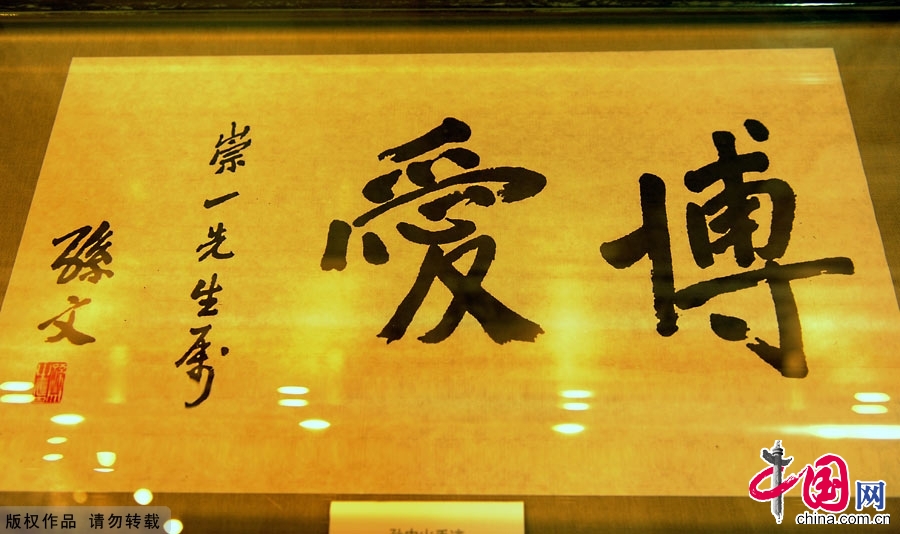 博愛
崇一先生属
孫文
孙中山手迹
中国网
china.com.cn
版权作品 请勿转载